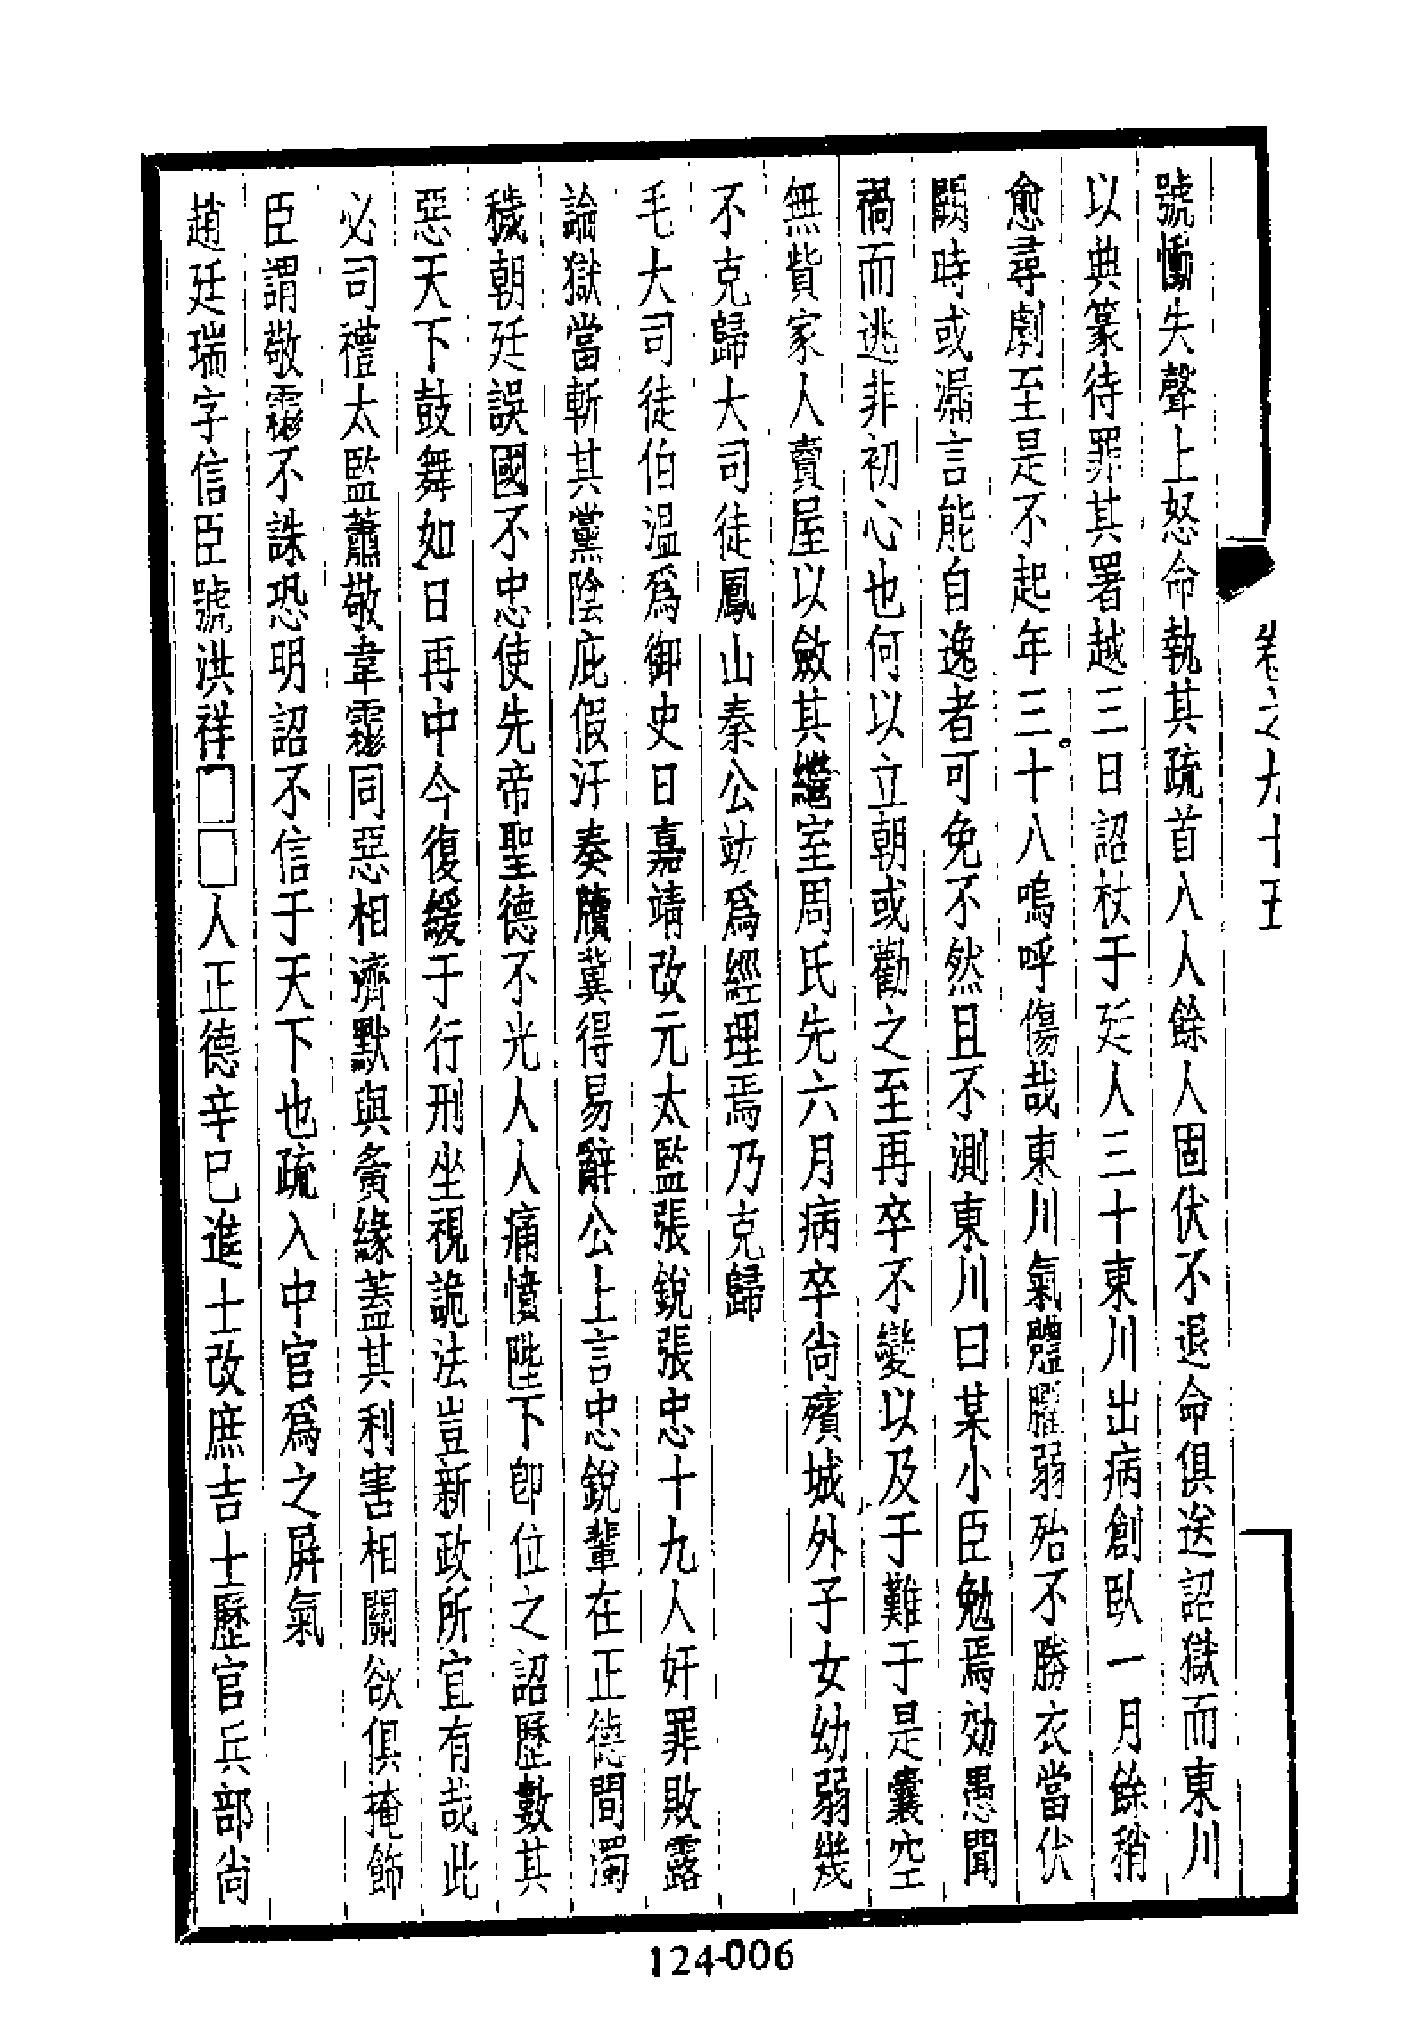 號慟失聲上怒命執其疏首八人餘人固伏不退命俱送詔獄而東川
以典篆待罪其署越三日詔杖于廷人三十東川出病創臥一月餘稍
愈尋劇至是不起年三十八嗚呼傷哉東川氣體臞弱殆不勝衣當伏
闕時或漏言能自逸者可免不然且不測東川曰某小臣勉焉効愚聞
禍而逃非初心也何以立朝或勸之至再卒不變以及于難于是囊空
無貲家人賣屋以斂其繼室周氏先六月病卒尚殯城外子女幼弱幾
不克歸大司徒鳳山秦公竑爲經理焉乃克歸
毛大司徒伯温爲御史日嘉靖改元太監張銳張忠十九人奸罪敗露
論獄當斬其黨陰庇假汙奏牘冀得易辭公上言忠銳輩在正德間濁
穢朝廷誤國不忠使先帝聖德不光人人痛憤陛下卽位之詔歷數其
惡天下鼓舞如日再中今復緩于行刑坐視詭法豈新政所宜有哉此
必司禮太監蕭敬韋霦同惡相濟默與夤緣蓋其利害相關欲俱掩飾
臣謂敬霦不誅恐明詔不信于天下也疏入中官爲之屏氣
趙廷瑞字信臣號洪祥□□人正德辛巳進士改庶吉士歷官兵部尚
卷之九十五
124-006